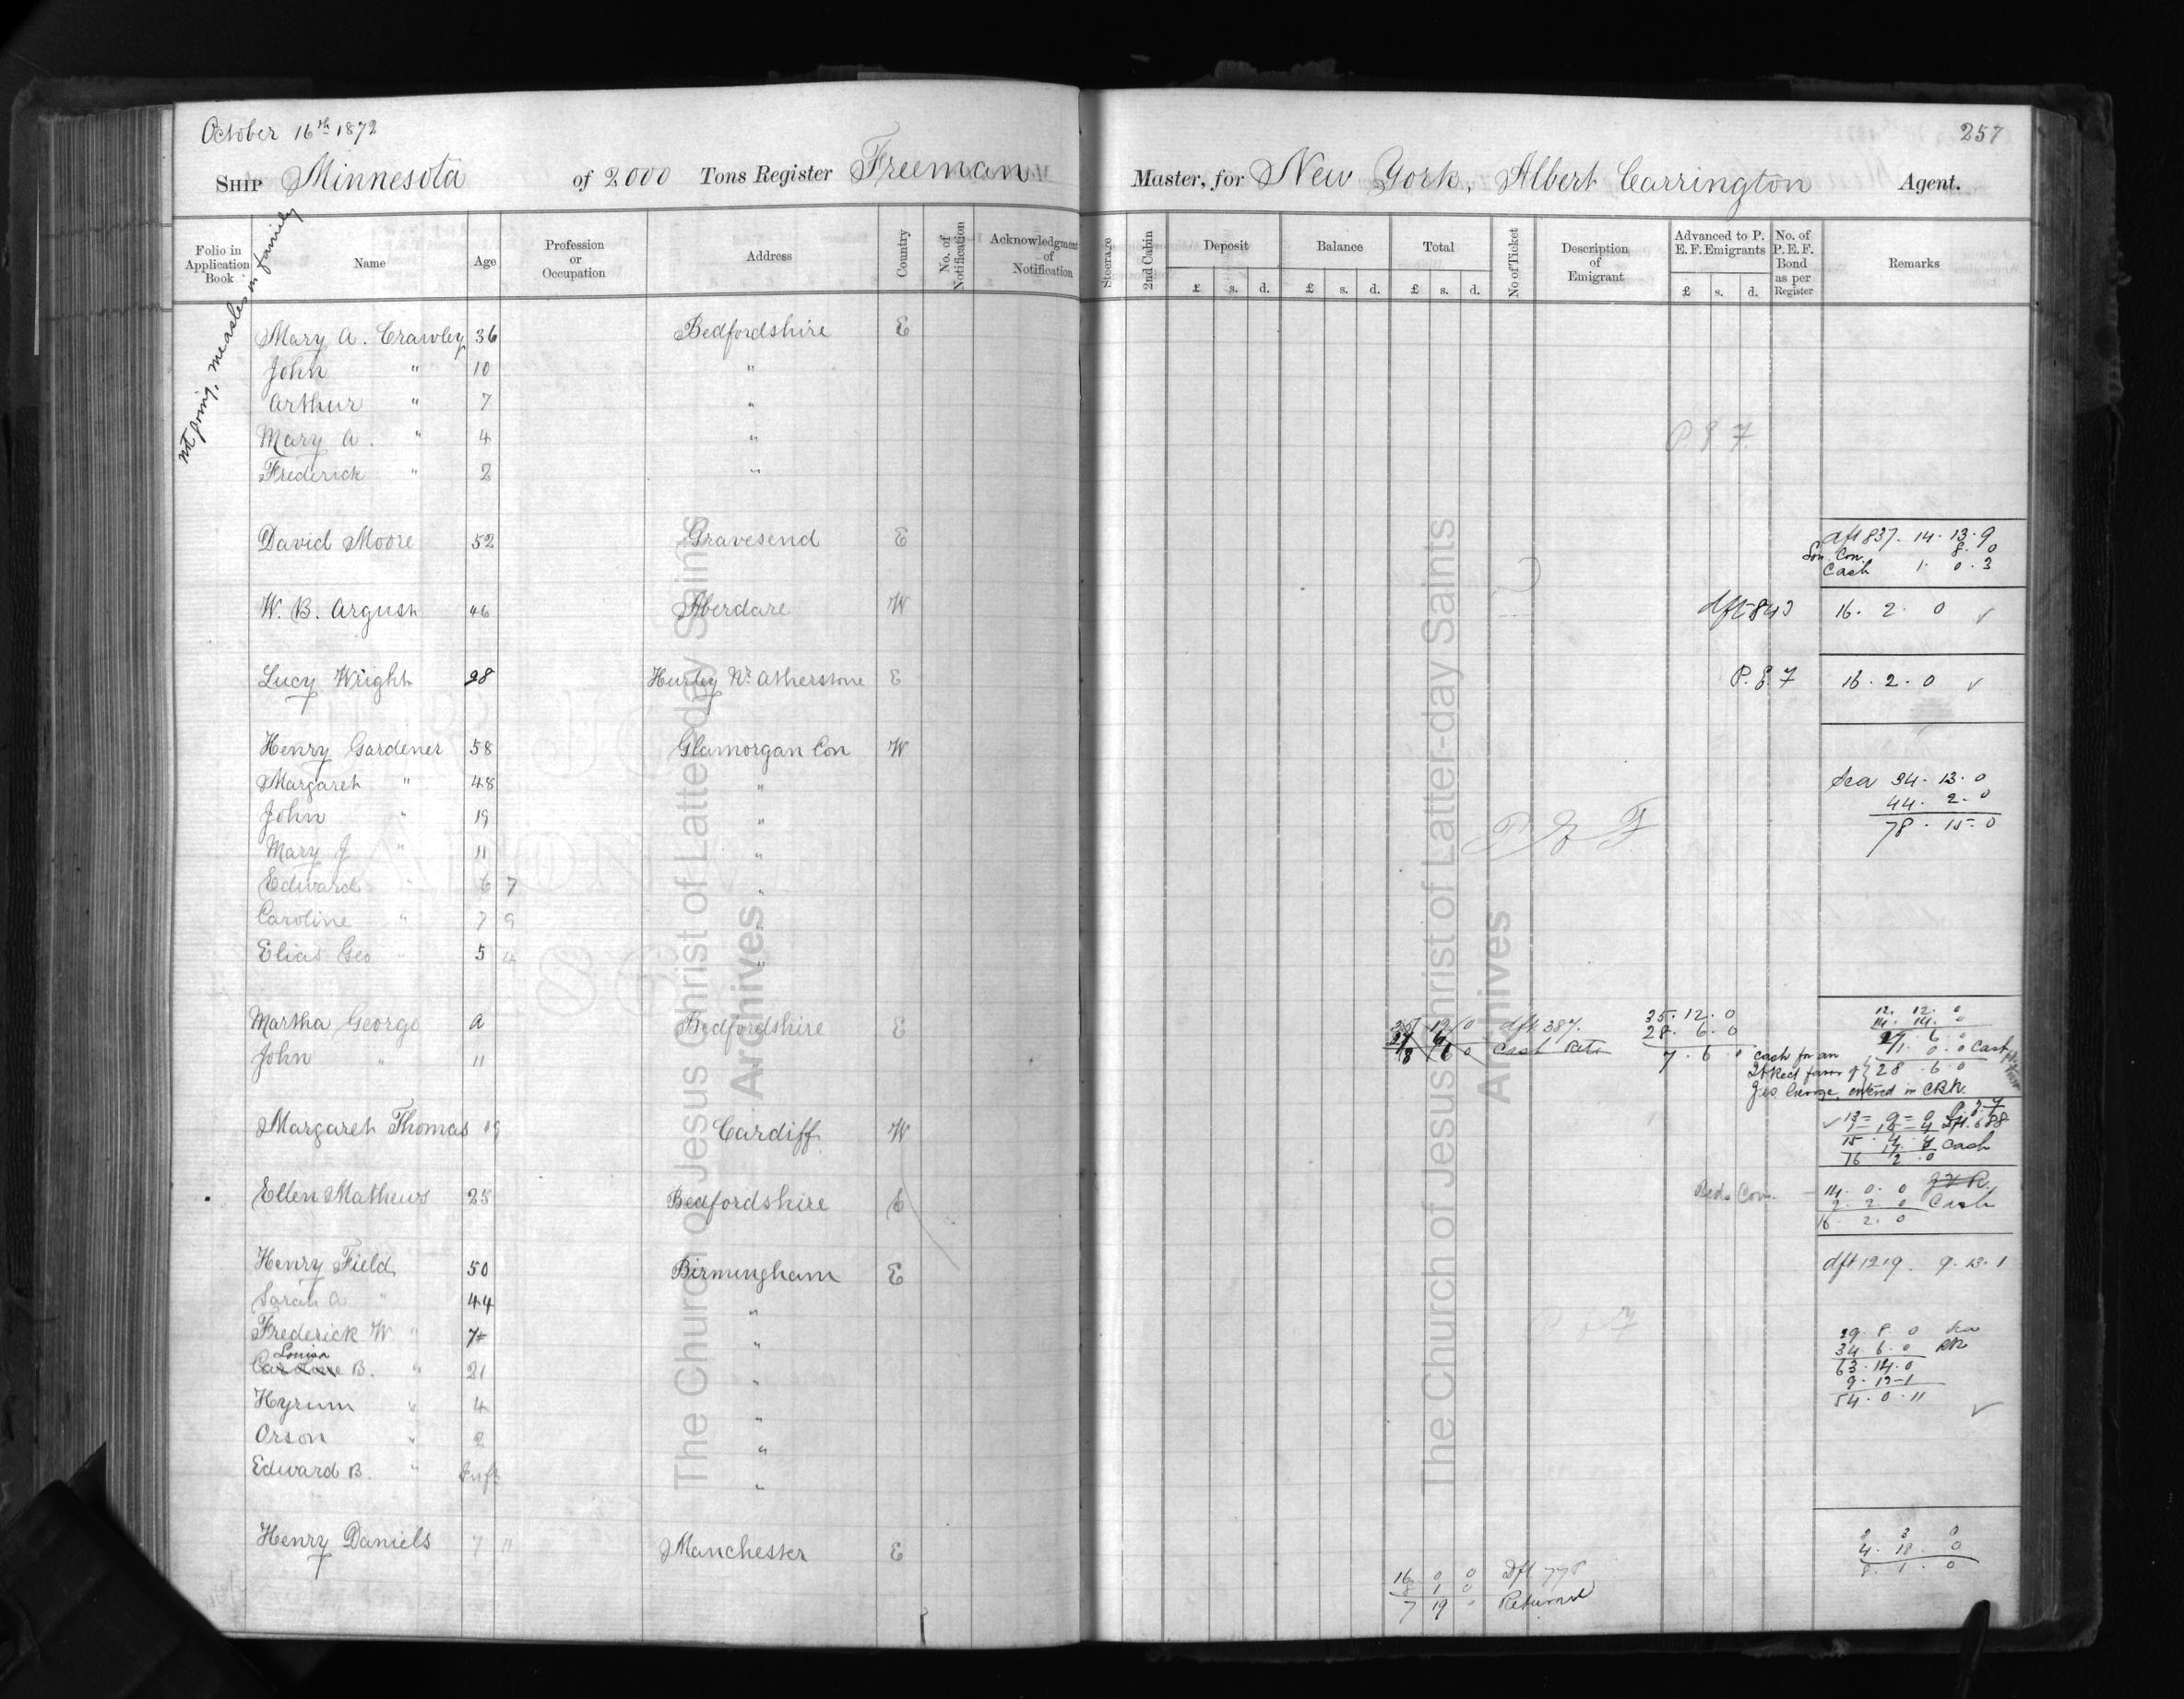 October 16th 1872
257
Ship Minnesota of 2000 Tons Register Freeman Master, for New York, Albert Carrington Agent.
Folio in Application Book
Name
Age
Profession or Occupation
Address
Country
No. of Notification
Acknowledgment of Notification
Steerage
2nd Cabin
Deposit £ s. d.
Balance £ s. d.
Total £ s. d.
No of Ticket
Description of Emigrant
Advanced to P. E. F. Emigrants £ s. d.
No. of P. E. F. Bond as per Register
Remarks
not going, measles in family
Mary A. Crawley 36 Bedfordshire E
John " 10 "
Arthur " 7 "
Mary A. " 4 " P E F
Frederick " 2 "
David Moore 52 Gravesend E dft 837. 14. 13. 9
Con. 8. 0
Cash 1. 0. 3
W. B. Argush 46 Aberdare W dft 843 16. 2. 0 ✓
Lucy Wright 28 Hurley Nr. Atherstone E P. E. F 16. 2. 0 ✓
Henry Gardener 58 Glamorgan Con W
Margaret " 48 " Sea 34. 13. 0
John " 19 " 44. 2. 0
Mary J " 11 " P E F 78. 15. 0
Edward " 6 7 "
Caroline " 7 9 "
Elias Geo " 5 4 "
Martha George A Bedfordshire E dft 387. 35. 12. 0 12. 12. 0
28. 6. 0 14. 14. 0
John " 11 Cash Retd 7. 6. 0 cash for an 27. 6. 0
1. 0. 0 Cash
favor of 28. 6. 0
Geo George, entered in CBk.
Margaret Thomas 19 Cardiff W ✓ 13 = 9 = 0 P. E. F
1 = 15 = 4 Dft. 688
15. 4. 4
17. 8 Cash
16 2. 0
Ellen Mathews 25 Bedfordshire E Beds Con. 14. 0. 0
2. 2. 0 Cash
16. 2. 0
Henry Field 50 Birmingham E dft 1219. 9. 13. 1
Sarah A " 44 "
Frederick W " 7 " 29. 8. 0 Sea
Louisa
Caroline B. " 21 " 34. 6. 0 RR
63. 14. 0
Hyrum " 4 " 9. 13 - 1
54. 0. 11 ✓
Orson " 2 "
Edward B. " Inft "
Henry Daniels 7 11 Manchester E 3 3 0
4. 18. 0
8. 1. 0
16 0 0 Dft 778
8 1 0
7 19 " Returned
The Church of Jesus Christ of Latter-day Saints
Archives
The Church of Jesus Christ of Latter-day Saints
Archives